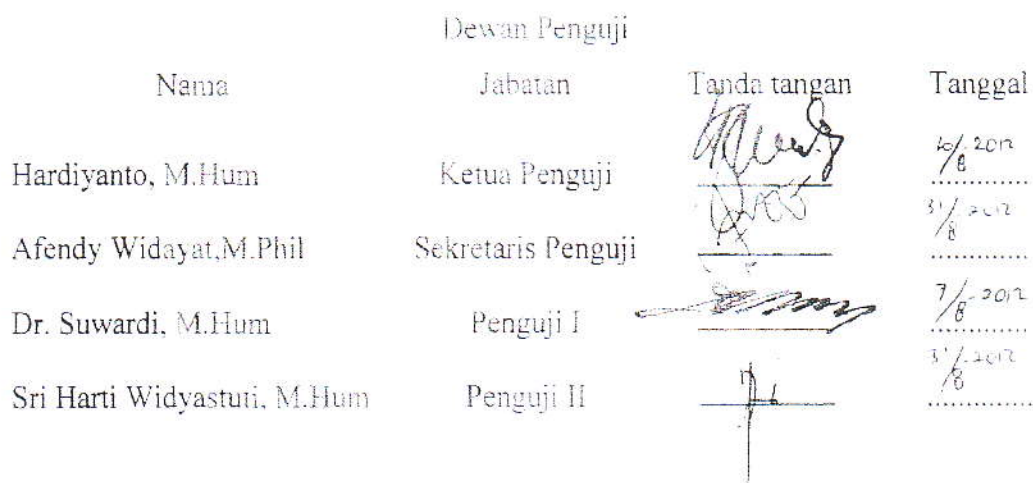 Dewan Penguji
Nama Jabatan Tanda tangan Tanggal
Hardiyanto, M.Hum Ketua Penguji /8 2012
Afendy Widayat,M.Phil Sekretaris Penguji 31/8 2012
Dr. Suwardi, M.Hum Penguji I 7/8 2012
Sri Harti Widyastuti, M.Hum Penguji II 31/8 2012